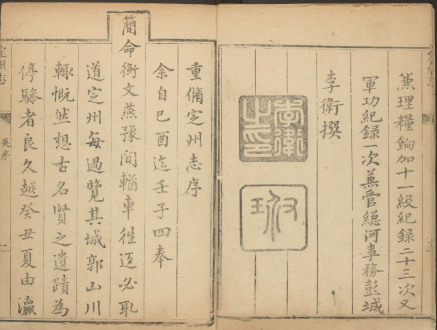 兼理糧餉加十一級紀錄二十三次又
軍功紀錄一次兼管總河事務彭城
李衛撰
李衛之印
重脩定州志序
余自己酉迄壬子四奉
簡命衡文燕豫間輶車徃迈必取
道定州每過覽其城郭山川
輙慨然想古名賢之遺蹟為
停驂者良久越癸丑夏由瀛
定州志
序